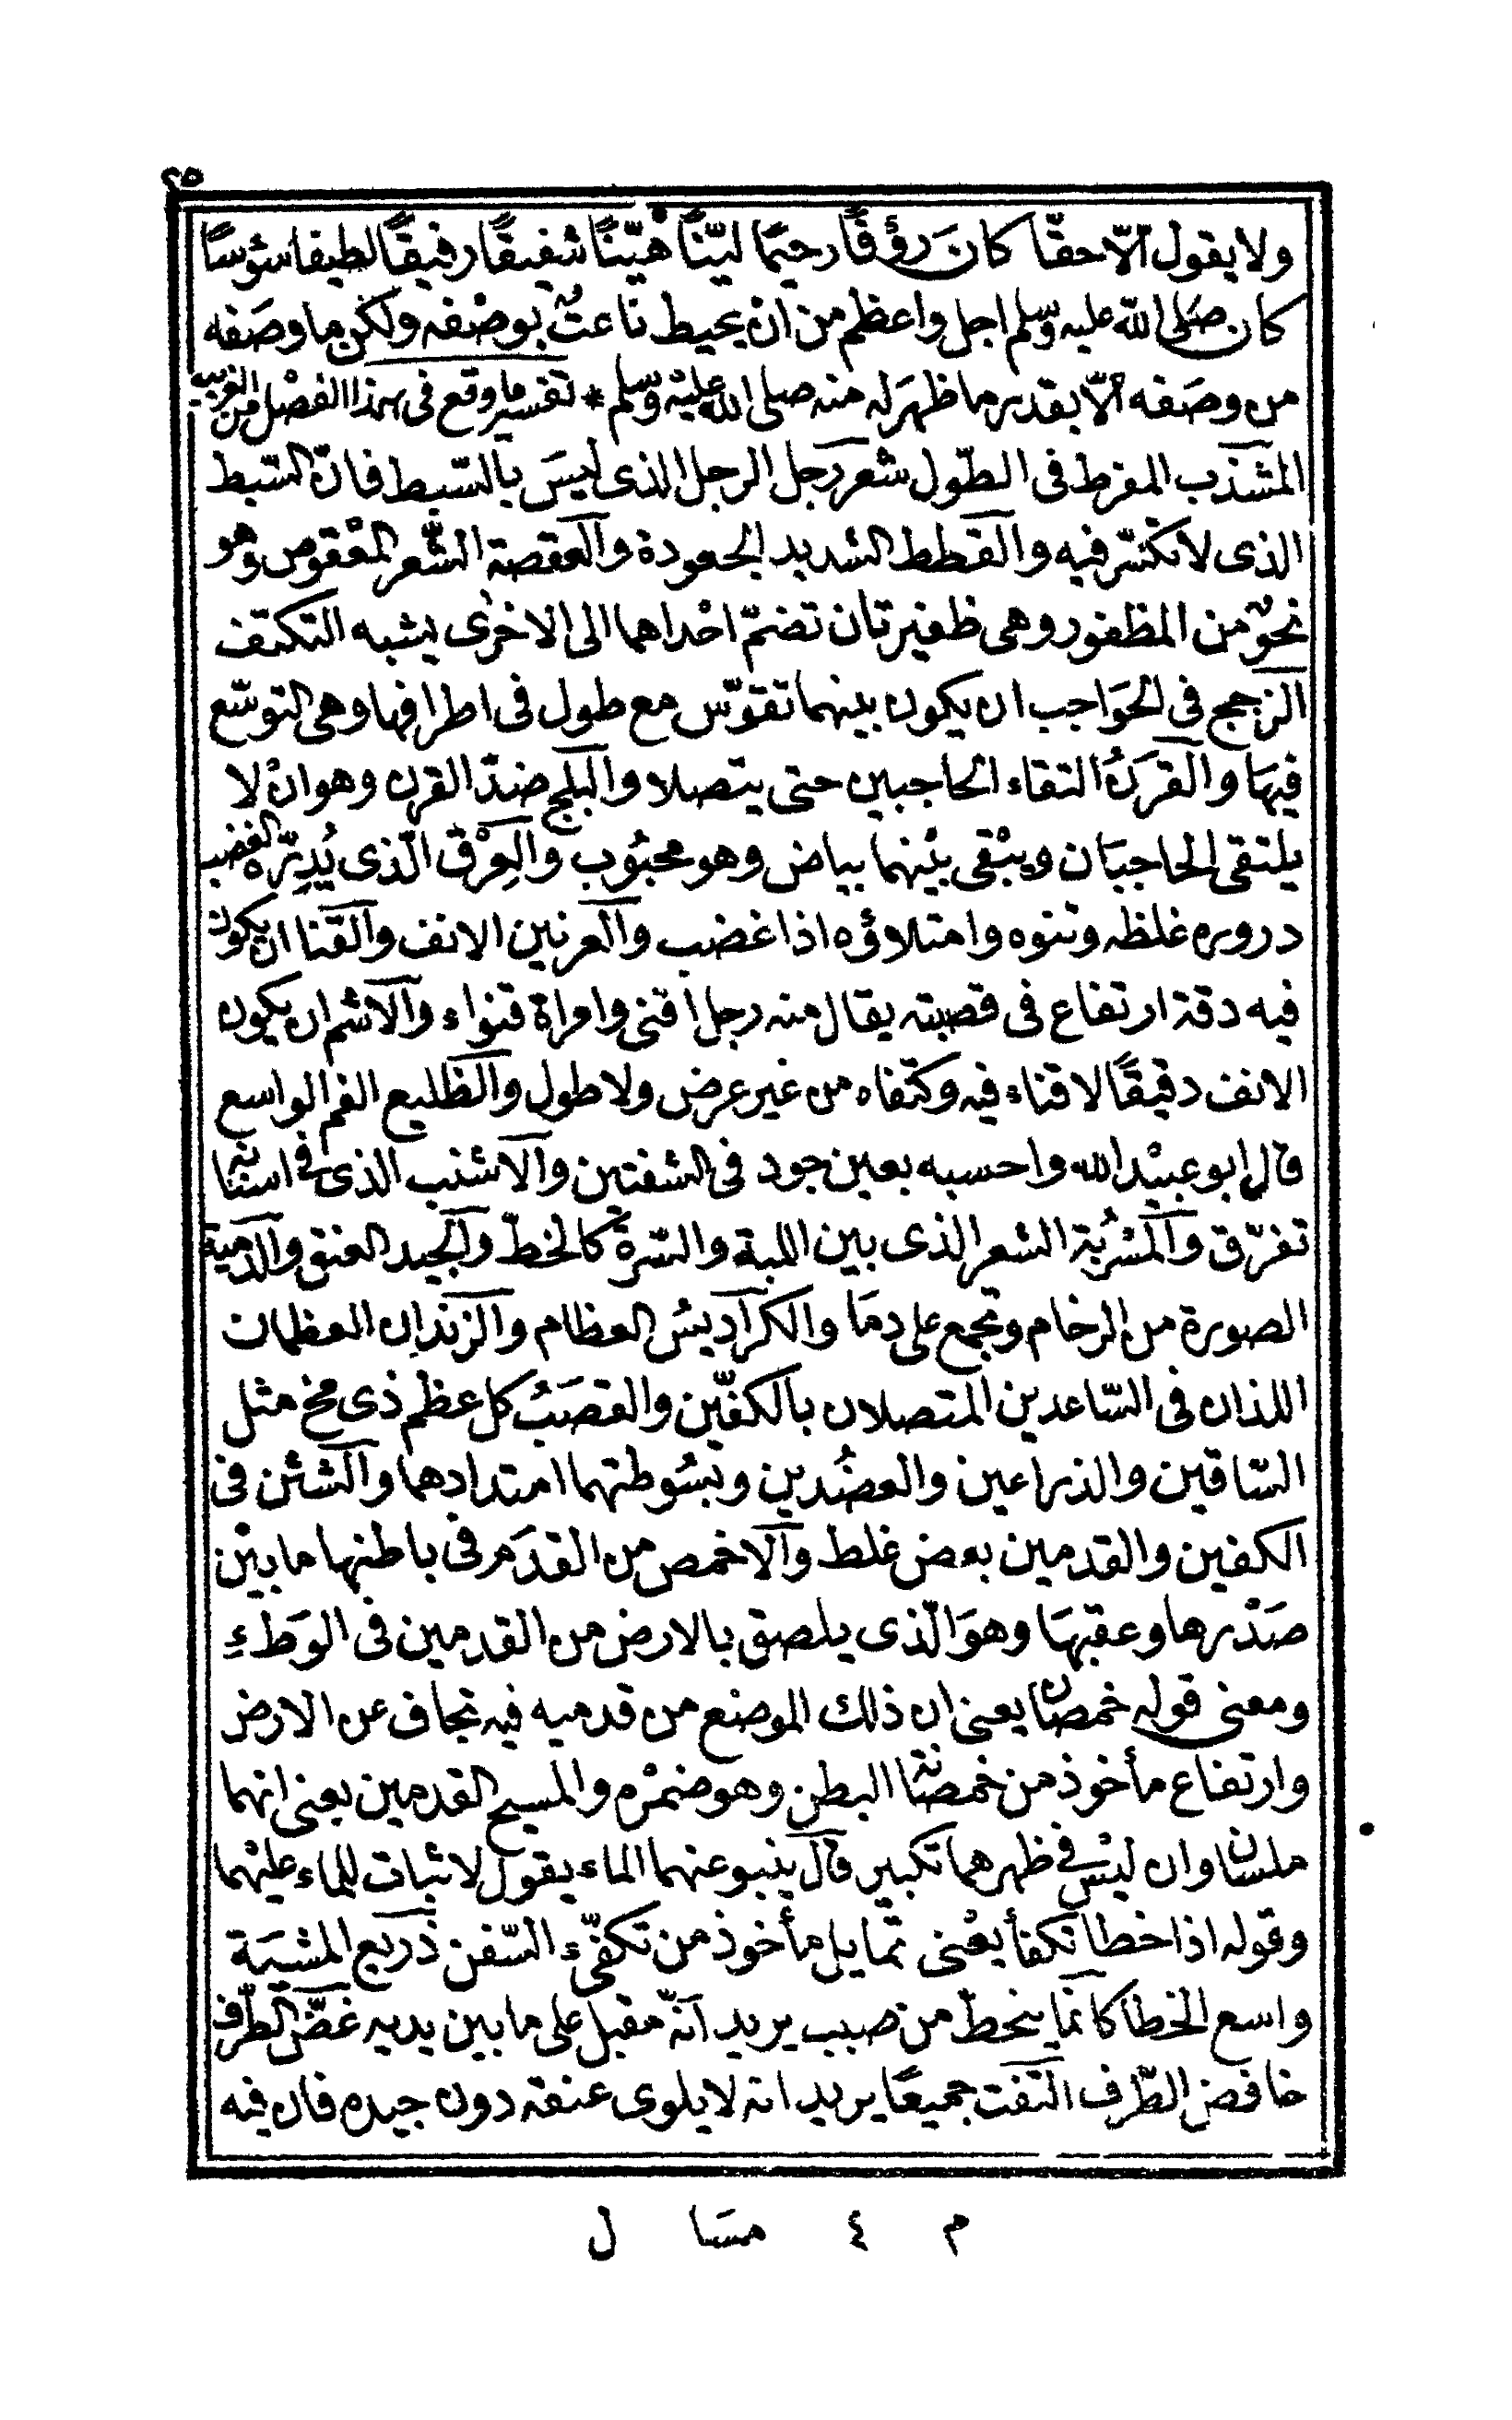 ٢٥
ولا يقول الّا حقّا كان رؤفًا رحيمًا ليّنًا هيّنًا شفيقًا رفيقًا لطيفا سؤسًا
كان صلى الله عليه وسلم اجل واعظم من ان يحيط ناعتٌ بوصْفه ولكن ما وصَفه
من وصَفه الّا بقدر ما ظهرَ له منه صلى الله عليْه وسلم * تفسير ما وقع فى هذا الفصْل من الغريب
المشذب المفرط فى الطّول شعر رجل الرجل الذى ليسَ بالسّبط فانّ السّبط
الذى لا تكسّر فيه والقطط الشديد الجعودة والعقصة الشّعر المعْقوص وهو
نحوٌ من المظفور وهى ظفيرتان تضمّ احْداهما الى الاخرٰى يشبه التكتف
الزجج فى الحَواجب ان يكون بينهما تقوّس مع طول فى اطرافها وهى التوسّع
فيهَا والقرَنُ التقاء الحاجبين حتى يتصلا والبلج ضدّ القرن وهو انْ لا
يلتقى الحاجبَان ويبْقى بيْنهما بياض وهو محبُوب والعِرْق الّذى يُدِرّه الغضب
دروره غلظه ونتوه وامتلاؤه اذا غضب والعرنين الانف والقنا ان يكون
فيه دقة ارتفاع فى قصبته يقال منه رجل اقنى وامراة قنواء والاشم ان يكون
الانف دقيقًا لا قناء فيه وكتفاه من غير عرض ولا طول والظليع الفم الواسع
قال ابو عبيْد الله واحسبه بعين جود فى الشفتين والاشنب الذى فى اسنانه
تفرّق والمشرُبة الشعر الذى بين اللبة والسّرة كالخطّ والجيد العنق والدمية
الصورة من الرخام وتجمع على دمَا والكراديسُ العظام والزندان العظمان
اللذان فى السّاعدين المتصلان بالكفّين والقصَبُ كل عظم ذى مخ مثل
السّاقين والذراعين والعضُدين وبسُوطتهما امتدادهما والشثن فى
الكفين والقدمين بعض غلط والاخمص من القدَم فى باطنها ما بيْن
صَدْرها وعقبهَا وهوَ الّذى يلصق بالارض من القدمين فى الوَطءِ
ومعنى قوله خمصان يعنى ان ذلك الموضع من قدميه فيه تجاف عن الارض
وارتفاع مأخوذ من خمصانة البطن وهو ضمْره والمسيح القدمين يعنى انهما
ملسان وان ليْس فى ظهرهما تكبير قال ينبو عنهما الماء يقول لا ثبات للماء عليْهما
وقوله اذا خطا تكفأ يعْنى تمايل مأخوذ من تكفّئ السّفن ذريع المشيَة
واسع الخطا كانما ينحطّ من صبب يريد انّه مقبل على ما بين يديه غضّ الطّرف
خافض الطّرف التفت جميعًا يريد انه لا يلوى عنقه دون جيده فان فيه
م ٤ مسَا ل